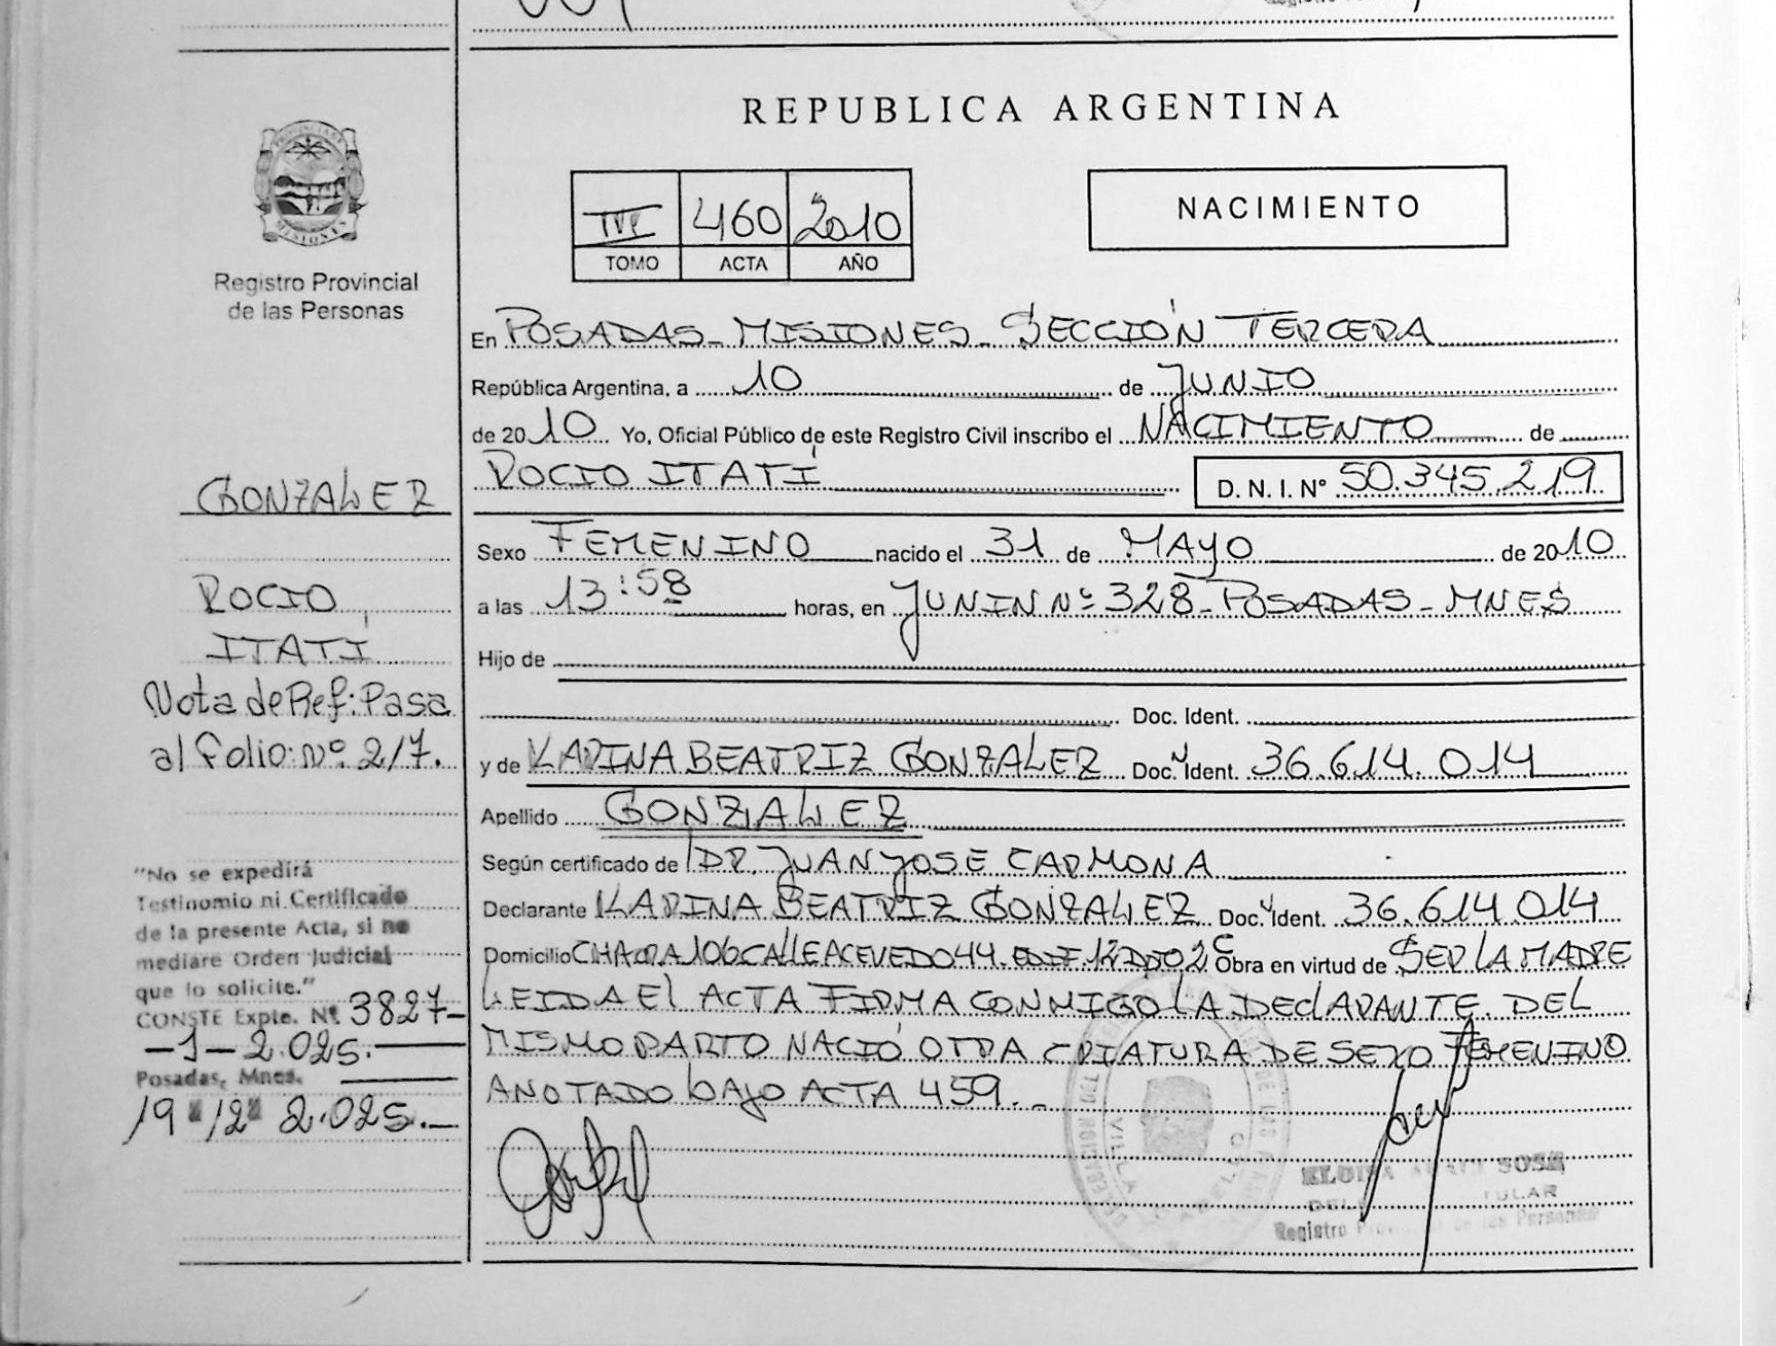 REPUBLICA ARGENTINA
PROVINCIA DE
MISIONES
Registro Provincial
de las Personas
460 2010
TOMO ACTA AÑO
NACIMIENTO
En POSADAS - MISIONES - SECCIÓN TERCERA
República Argentina, a 10 de JUNIO
de 2010 Yo, Oficial Público de este Registro Civil inscribo el NACIMIENTO de
ROCIO ITATÍ D. N. I. Nº 50.345.219
Sexo FEMENINO nacido el 31 de MAYO de 2010
a las 13:58 horas, en JUNIN Nº 328 - POSADAS - MNES
Hijo de
Doc. Ident.
y de KARINA BEATRIZ GONZALEZ Doc. Ident. 36.614.014
Apellido GONZALEZ
Según certificado de DR. JUAN JOSE CARMONA
Declarante KARINA BEATRIZ GONZALEZ Doc. Ident. 36.614.014
Domicilio CHACRA 106 CALLE ACEVEDO 44. EDIF. 12 DPTO 2 C Obra en virtud de SER LA MADRE
LEIDA El ACTA FIRMA CONMIGO LA DEClARANTE. DEL
MISMO PARTO NACIÓ OTRA CRIATURA DE SEXO FEMENINO
ANOTADO bAJO ACTA 459. -
GONZALEZ
ROCIO
ITATÍ
Nota de Ref: Pasa
al folio: nº 217.
"No se expedirá
Testinomio ni Certificado
de la presente Acta, si no
mediare Orden Judicial
que lo solicite."
CONSTE Expte. Nº 3827-
-J-2.025.-
Posadas, Mnes.
19 " 12 " 2.025.-
SOSA
Registro